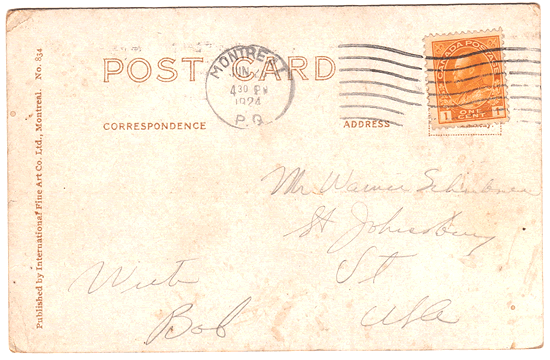 POST CARD
MONTREAL
JUN
4 30 PM
1924
P.Q.
CANADA POSTAGE
1 1
ONE
CENT
CORRESPONDENCE
ADDRESS
Published by International Fine Art Co. Ltd., Montreal. No. 834
Mr Warner
St Johnsbury
Vt
USA
Write
Bob